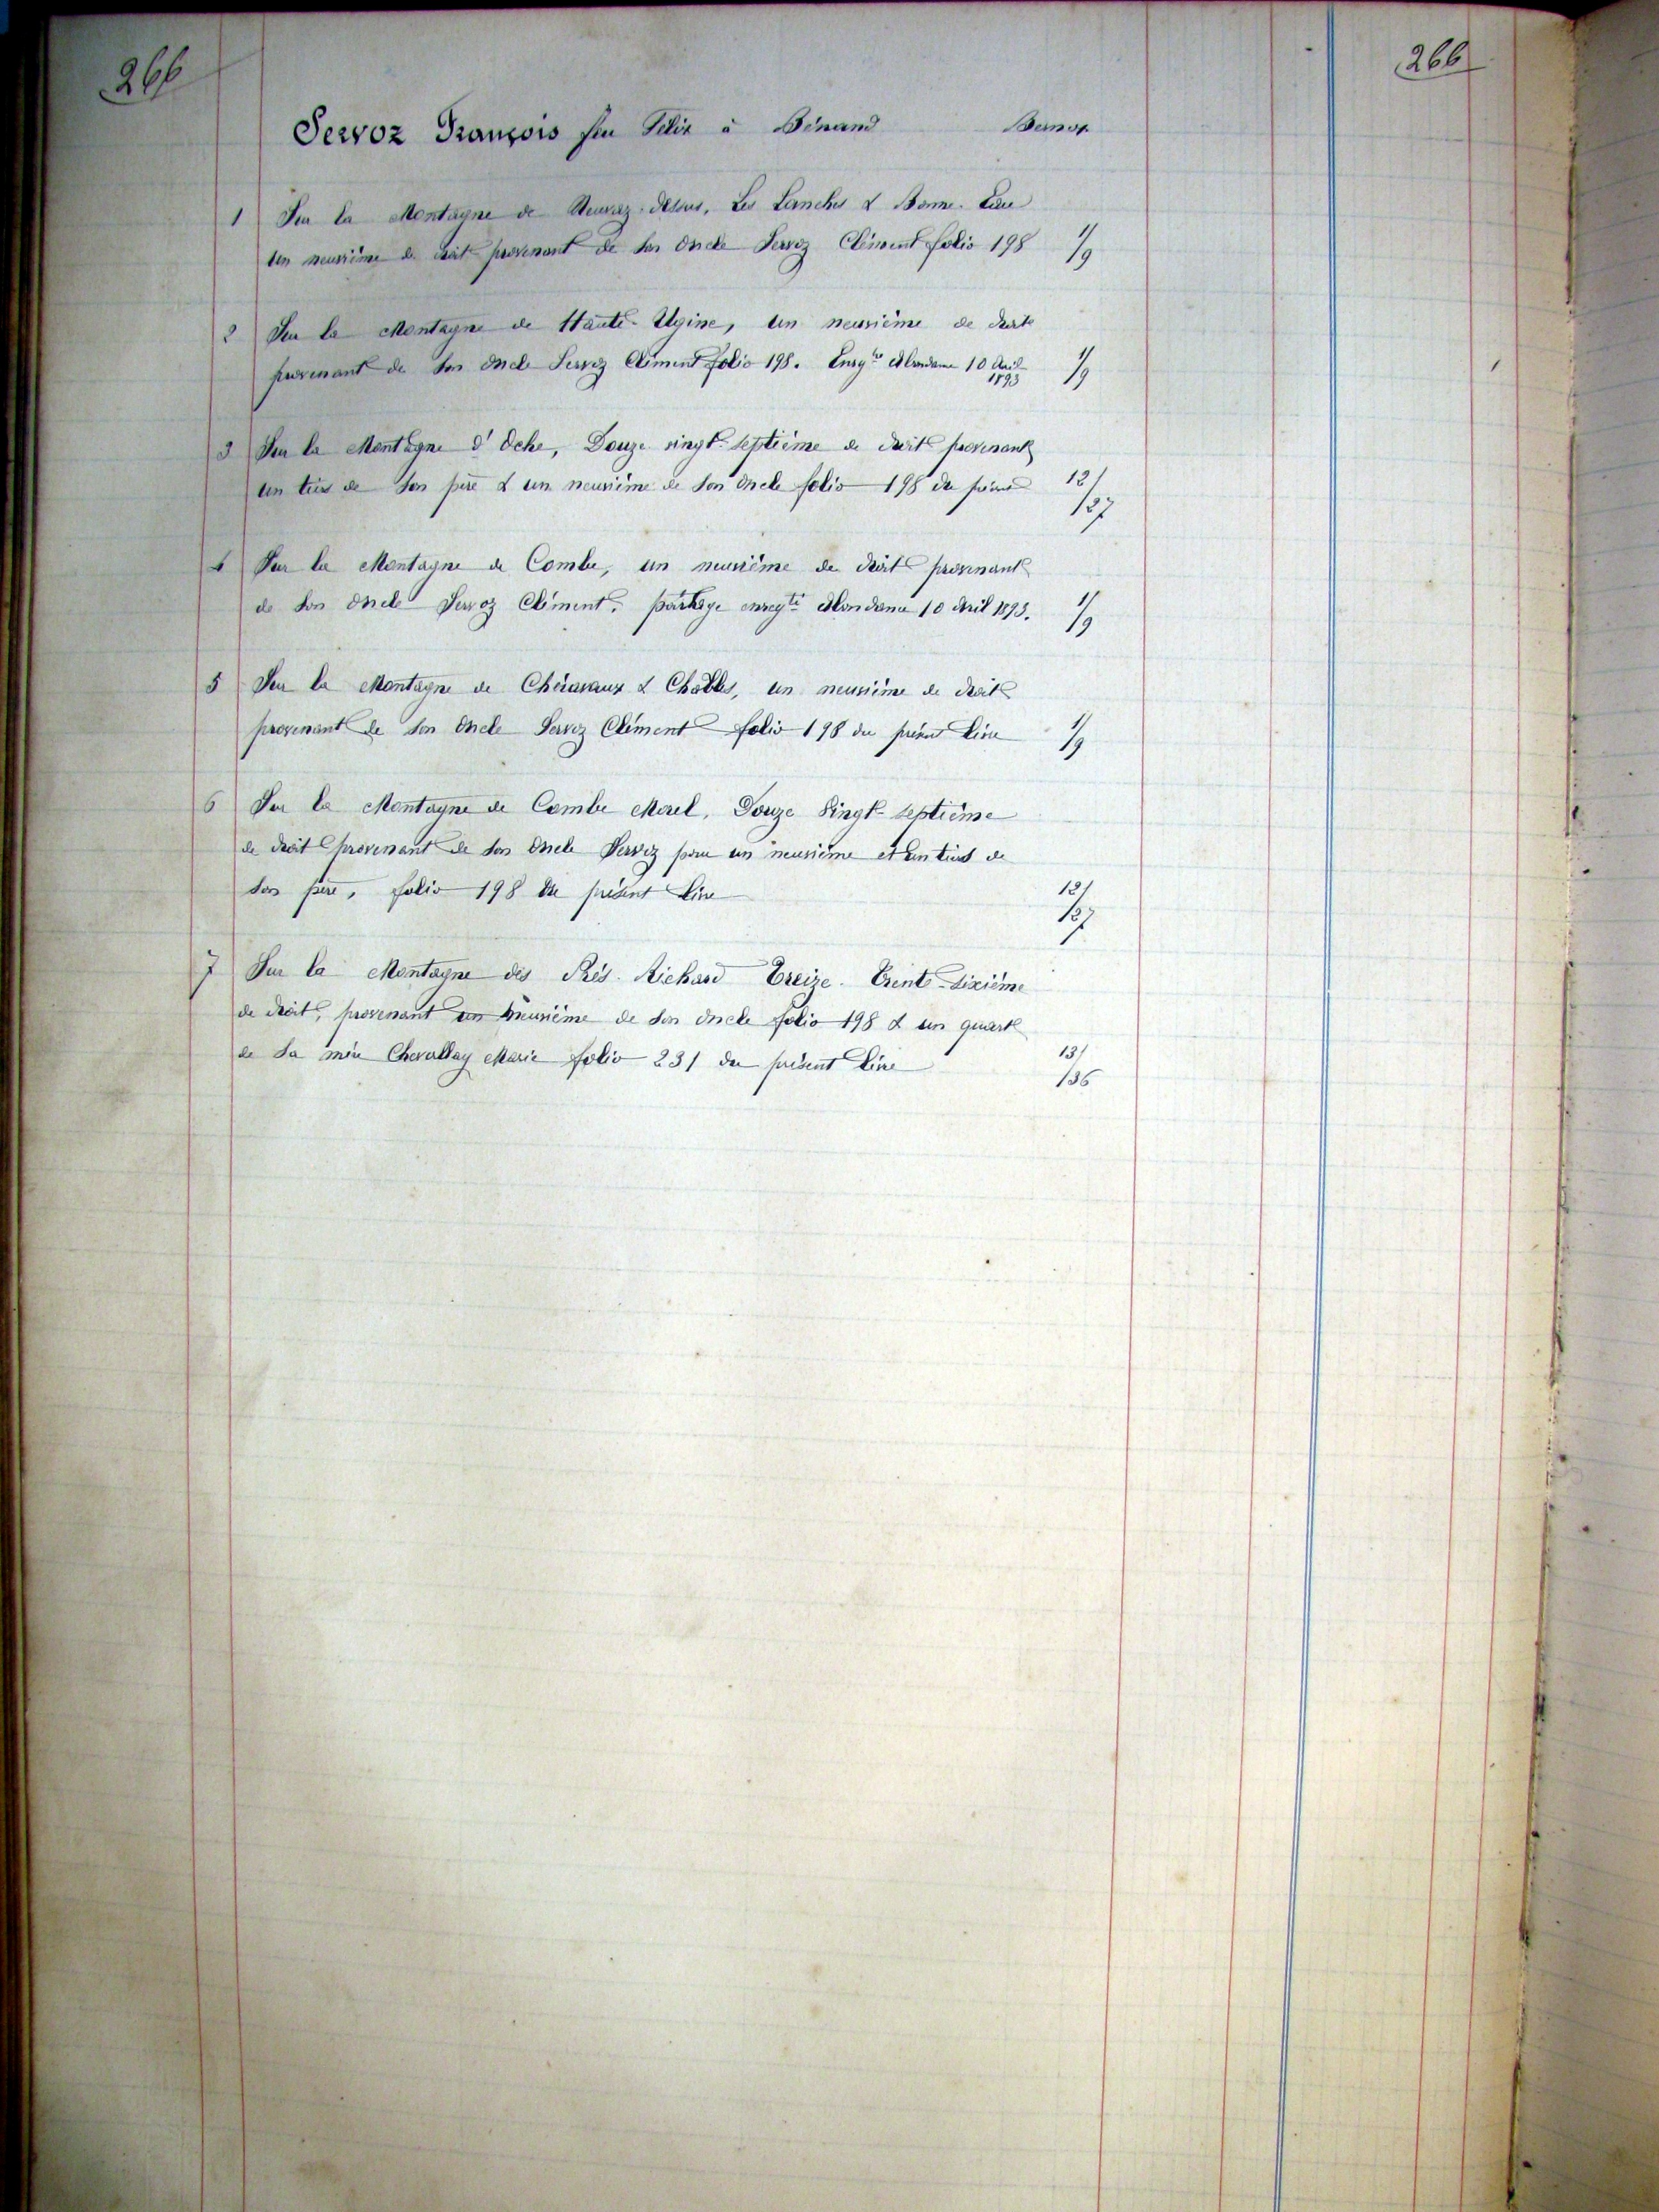 266
266
Servoz François feu Félix à Bénand Bernex
1 Sur la Montagne de Neuvaz-dessus, Les Lanches & Bonne-Eau
un neuvième de droit provenant de son oncle Servoz Clément folio 198 1/9
2 Sur la Montagne de Haute-Ugine, un neuvième de droit
provenant de son oncle Servoz Clément folio 198. Enregté Abondance 10 Avril 1893 1/9
3 Sur la Montagne d'Oche, Douze vingt-septième de droit provenant
un tiers de son père & un neuvième de son oncle folio 198 du présent 12/27
4 Sur la Montagne de Combe, un neuvième de droit provenant
de son oncle Servoz Clément. partage enregté Abondance 10 Avril 1893. 1/9
5 Sur la Montagne de Chéravaux & Chables, un neuvième de droit
provenant de son oncle Servoz Clément folio 198 du présent livre 1/9
6 Sur la Montagne de Combe Morel, Douze Vingt-septième
de droit provenant de son oncle Servoz pour un neuvième et un tiers de
son père, folio 198 du présent livre 12/27
7 Sur la Montagne des Prés-Richard Treize-Trente-sixième
de droit, provenant un neuvième de son oncle folio 198 & un quart
de sa mère Chevallay Marie folio 231 du présent livre 13/36